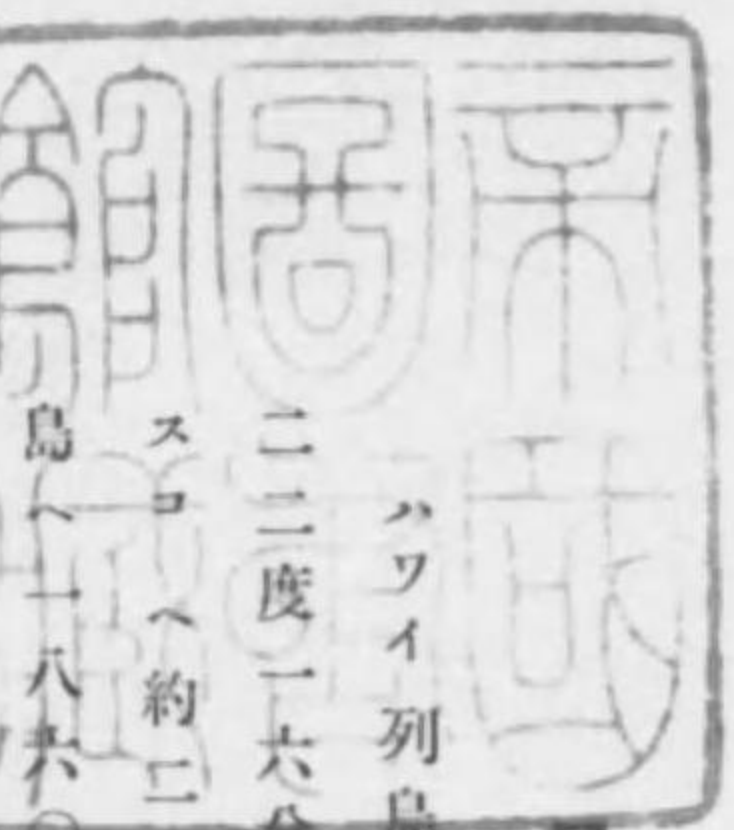 帝國
圖書
館藏
ハワイ列島
二二度一六分
スコへ約二
島へ一八六〇